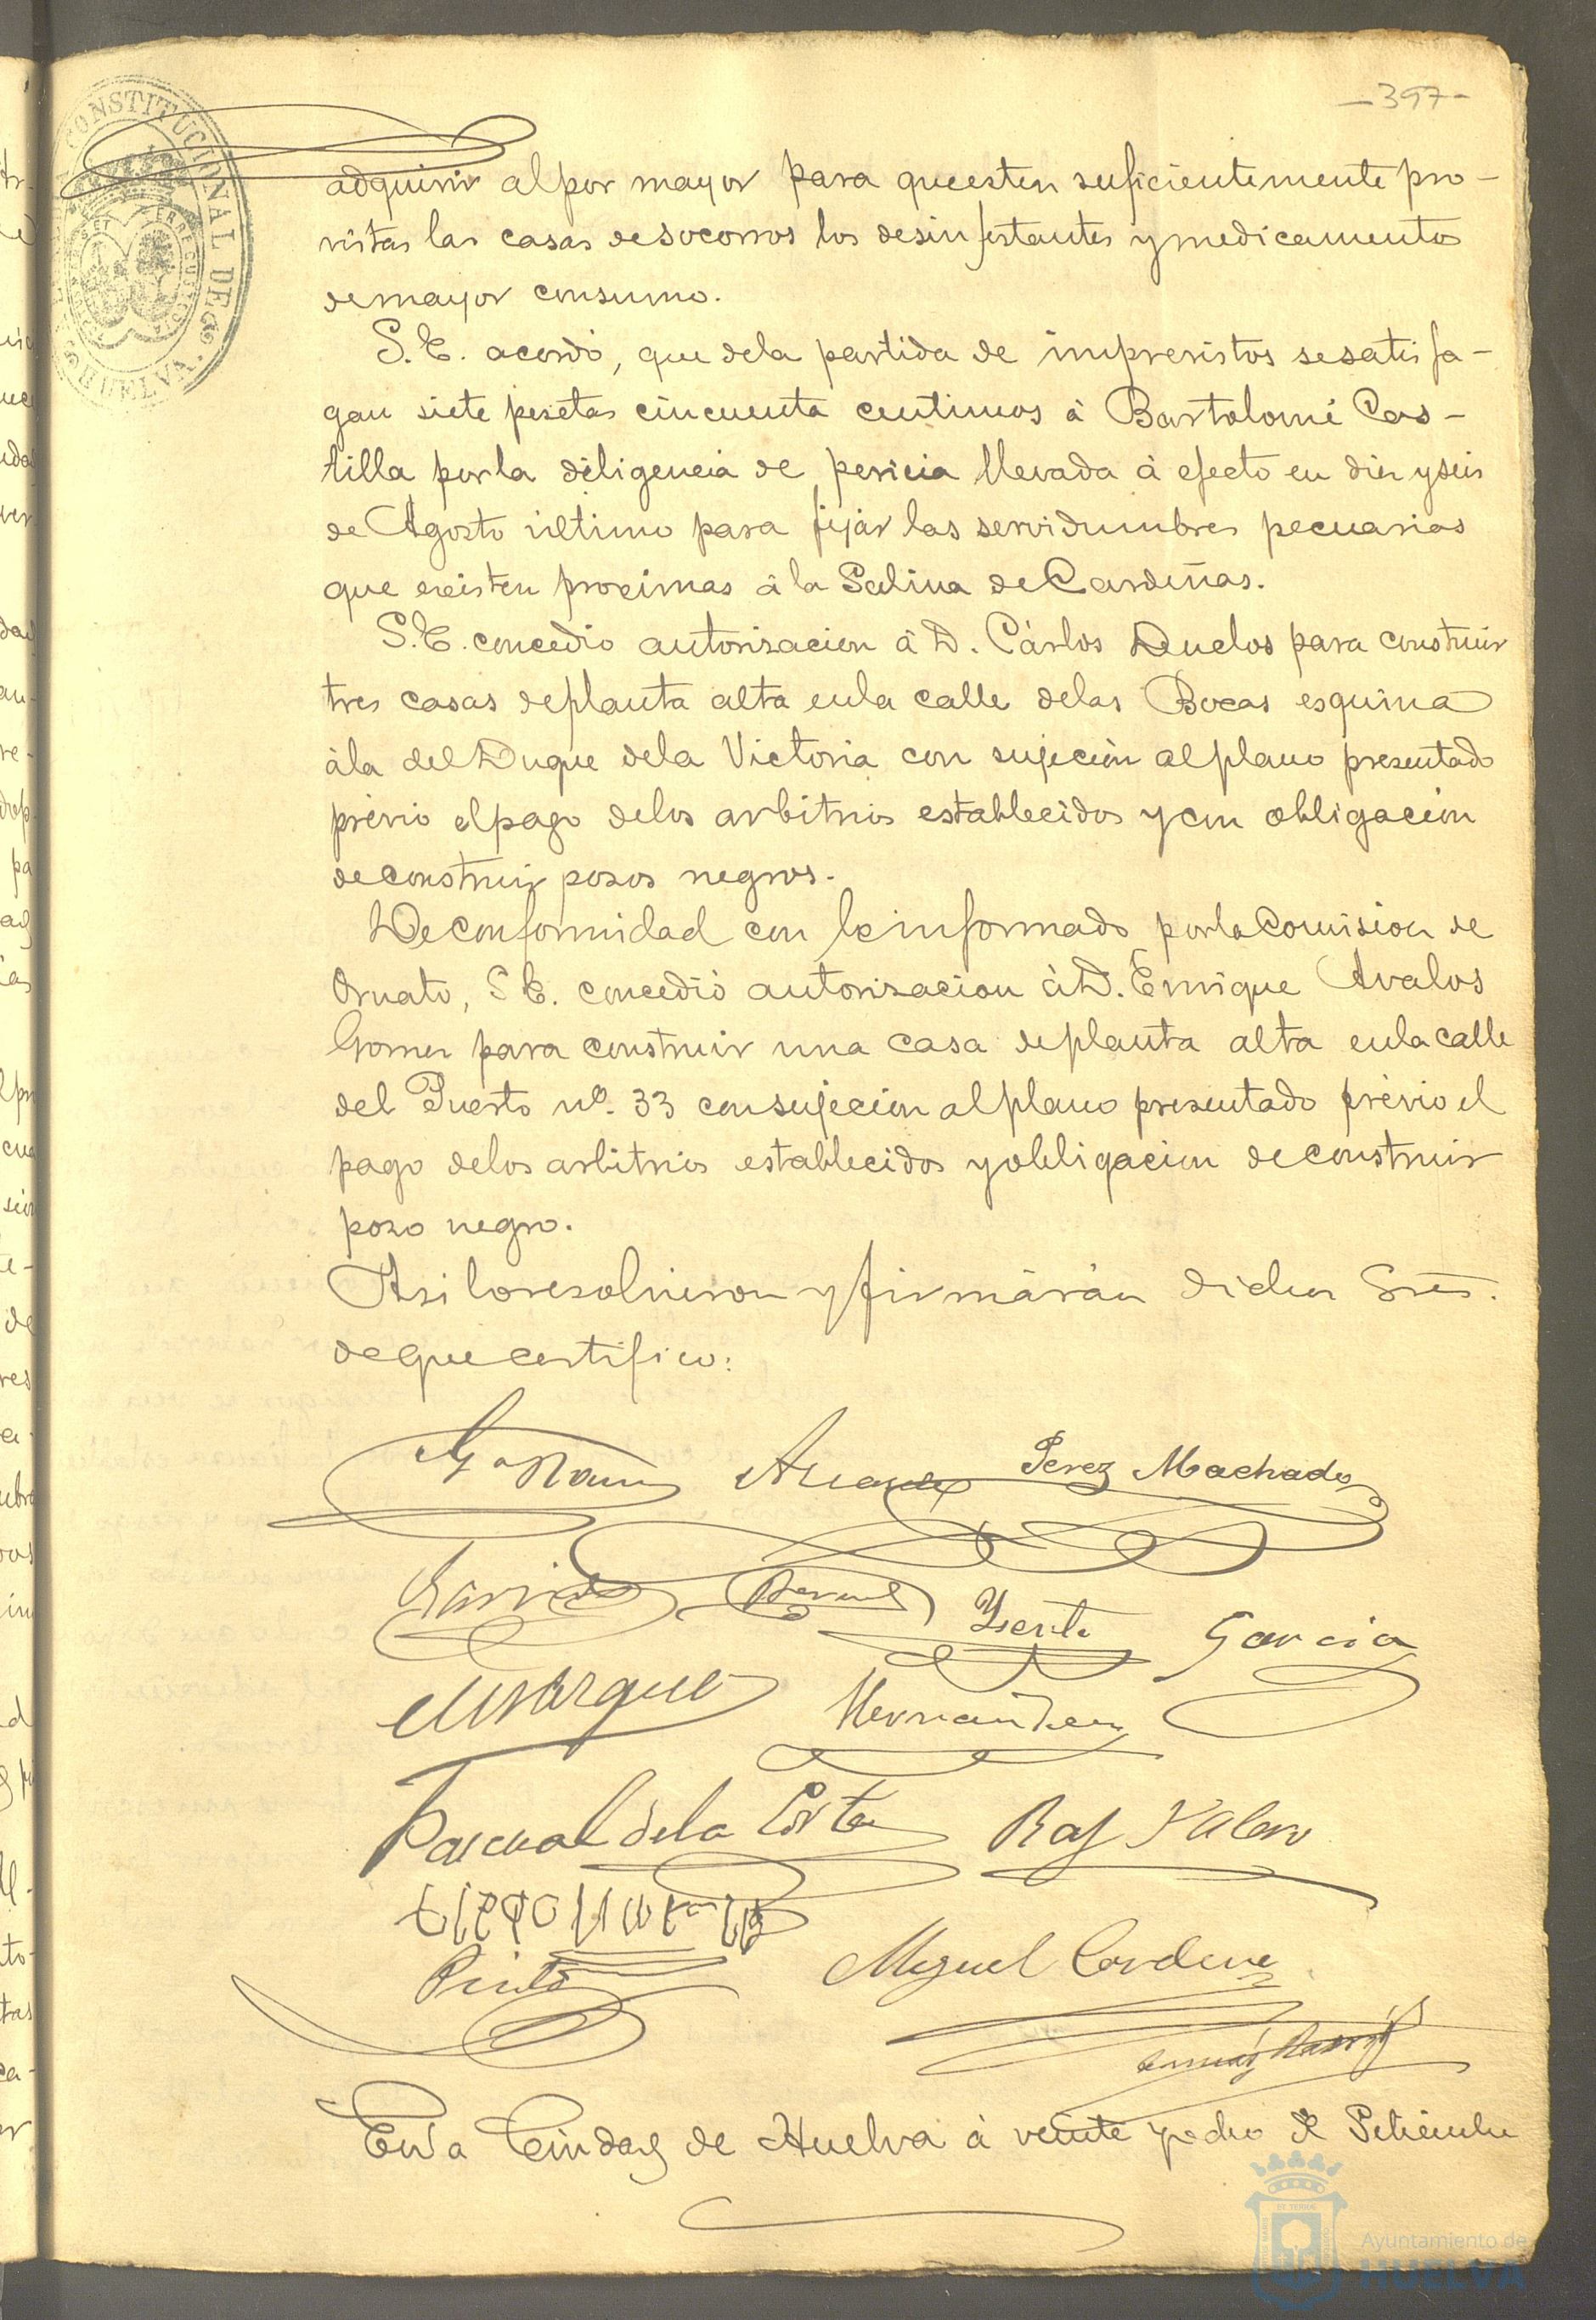 -397-
CONSTITUCIONAL DE
HUELVA
adquirir al por mayor para que esten suficientemente pro-
vistas las casas de socorros los desinfestantes y medicamentos
de mayor consumo.
S. E. acordó, que de la partida de imprevistos se satisfa-
gan siete pesetas cincuenta centimos á Bartolomé Cas-
tilla por la diligencia de pericia llevada á efecto en diez y seis
de Agosto último para fijar las servidumbres pecuarias
que existen proximas á la Salina de Cardeñas.
S. E. concedió autorizacion á D. Cárlos Duclos para construir
tres casas de planta alta en la calle de las Bocas esquina
á la del Duque de la Victoria con sujeción al plano presentado
prévio el pago de los arbitrios establecidos y con obligación
de construir pozos negros.
De conformidad con lo informado por la Comision de
Ornato, S. E. concedió autorizacion á D. Enrique Avalos
Gomez para construir una casa de planta alta en la calle
del Puerto nº. 33 con sujeción al plano presentado prévio el
pago de los arbitrios establecidos y obligacion de construir
pozo negro.
Asi lo resolvieron y firmáran dichos Sres.
de que certifico:
Perez Machado
Garcia
Marquez
Hernandez
Pascual de la Corte
Raf Valero
Pinto
Miguel Cordero
En la Ciudad de Huelva á veinte y ocho de Setiembre
Ayuntamiento de
HUELVA